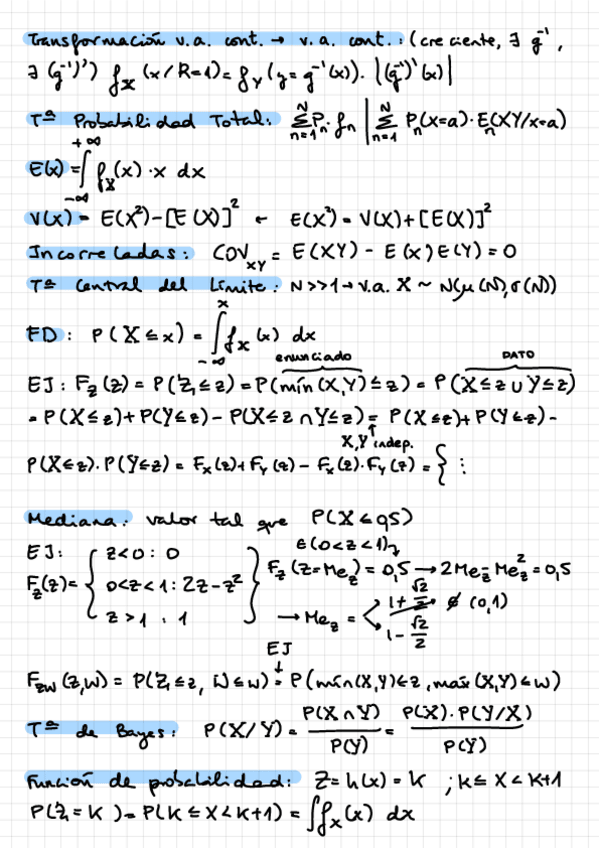 Transformación v.a. cont. → v.a. cont.: (creciente, ∃ g⁻¹,
∃ (g⁻¹)') f_X (x/R=1) = f_Y (y = g⁻¹(x)). |(g⁻¹)'(x)|
Tª Probabilidad Total: Σ_{n=1}^{N} P_n · f_n | Σ_{n=1}^{N} P_n(X=a) · E_n(XY/x=a)
E(x) = ∫_{-∞}^{+∞} f_X(x) · x dx
V(x) = E(X²) - [E(X)]² ← E(X²) = V(X) + [E(X)]²
Incorreladas: COV_XY = E(XY) - E(X)E(Y) = 0
Tª Central del Límite: N>>1 → v.a. X ~ N(μ(N), σ(N))
FD: P(X ≤ x) = ∫_{-∞}^{x} f_X(x) dx
enunciado DATO
EJ: F_Z(z) = P(Z ≤ z) = P(mín(X,Y) ≤ z) = P(X ≤ z ∪ Y ≤ z)
= P(X ≤ z) + P(Y ≤ z) - P(X ≤ z ∩ Y ≤ z) = P(X ≤ z) + P(Y ≤ z) -
X,Y indep.
P(X ≤ z). P(Y ≤ z) = F_X(z) + F_Y(z) - F_X(z). F_Y(z) = { ⋮
Mediana: valor tal que P(X ≤ 0,5)
∈(0<z<1)
EJ: F_Z(z) = { z<0: 0
0<z<1: 2z-z²
z>1: 1 }
F_Z(Z=Me_Z) = 0,5 → 2Me_Z - Me_Z² = 0,5
→ Me_Z = < 1+√2/2 ∉ (0,1)
1-√2/2
EJ
F_ZW(z,w) = P(Z ≤ z, W ≤ w) = P(mín(X,Y) ≤ z, máx(X,Y) ≤ w)
Tª de Bayes: P(X/Y) = P(X∩Y)/P(Y) = P(X). P(Y/X)/P(Y)
Función de probabilidad: Z = h(x) = K ; K ≤ X < K+1
P(Z = K) = P(K ≤ X < K+1) = ∫f_X(x) dx